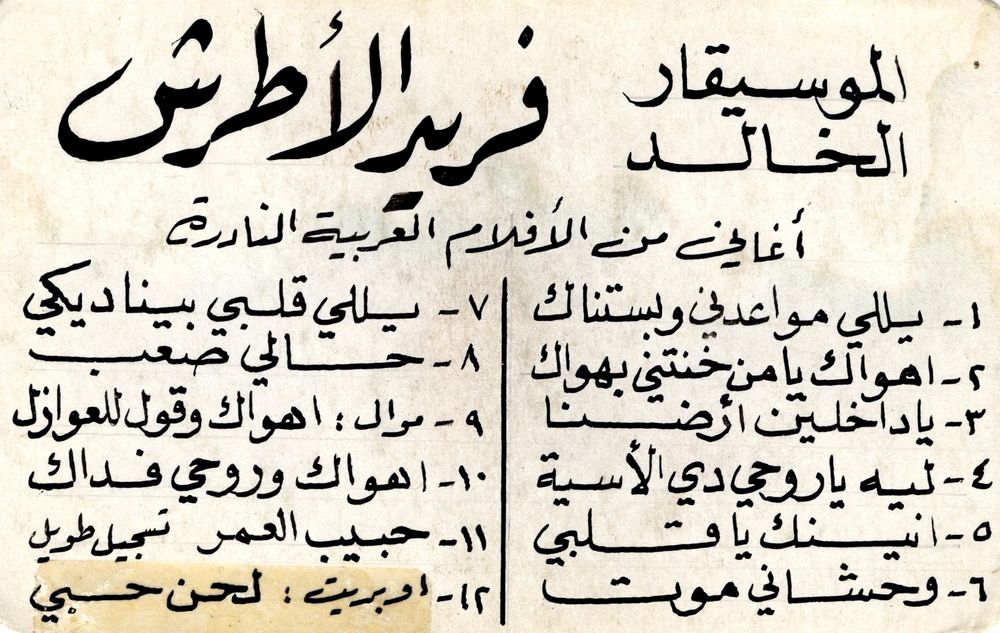 الموسيقار
الخالد
فريد الأطرش
أغاني من الأفلام العربية النادرة
١- يللي مواعدني وبستناك
٢- اهواك يا من خنتني بهواك
٣- ياداخلين أرضنا
٤- ليه ياروحي دي الأسية
٥- انينك يا قلبي
٦- وحشاني موت
٧- يللي قلبي بيناديكي
٨- حالي صعب
٩- موال : اهواك وقول للعوازل
١٠- اهواك وروحي فداك
١١- حبيب العمر تسجيل طويل
١٢- اوبريت : لحن حبي